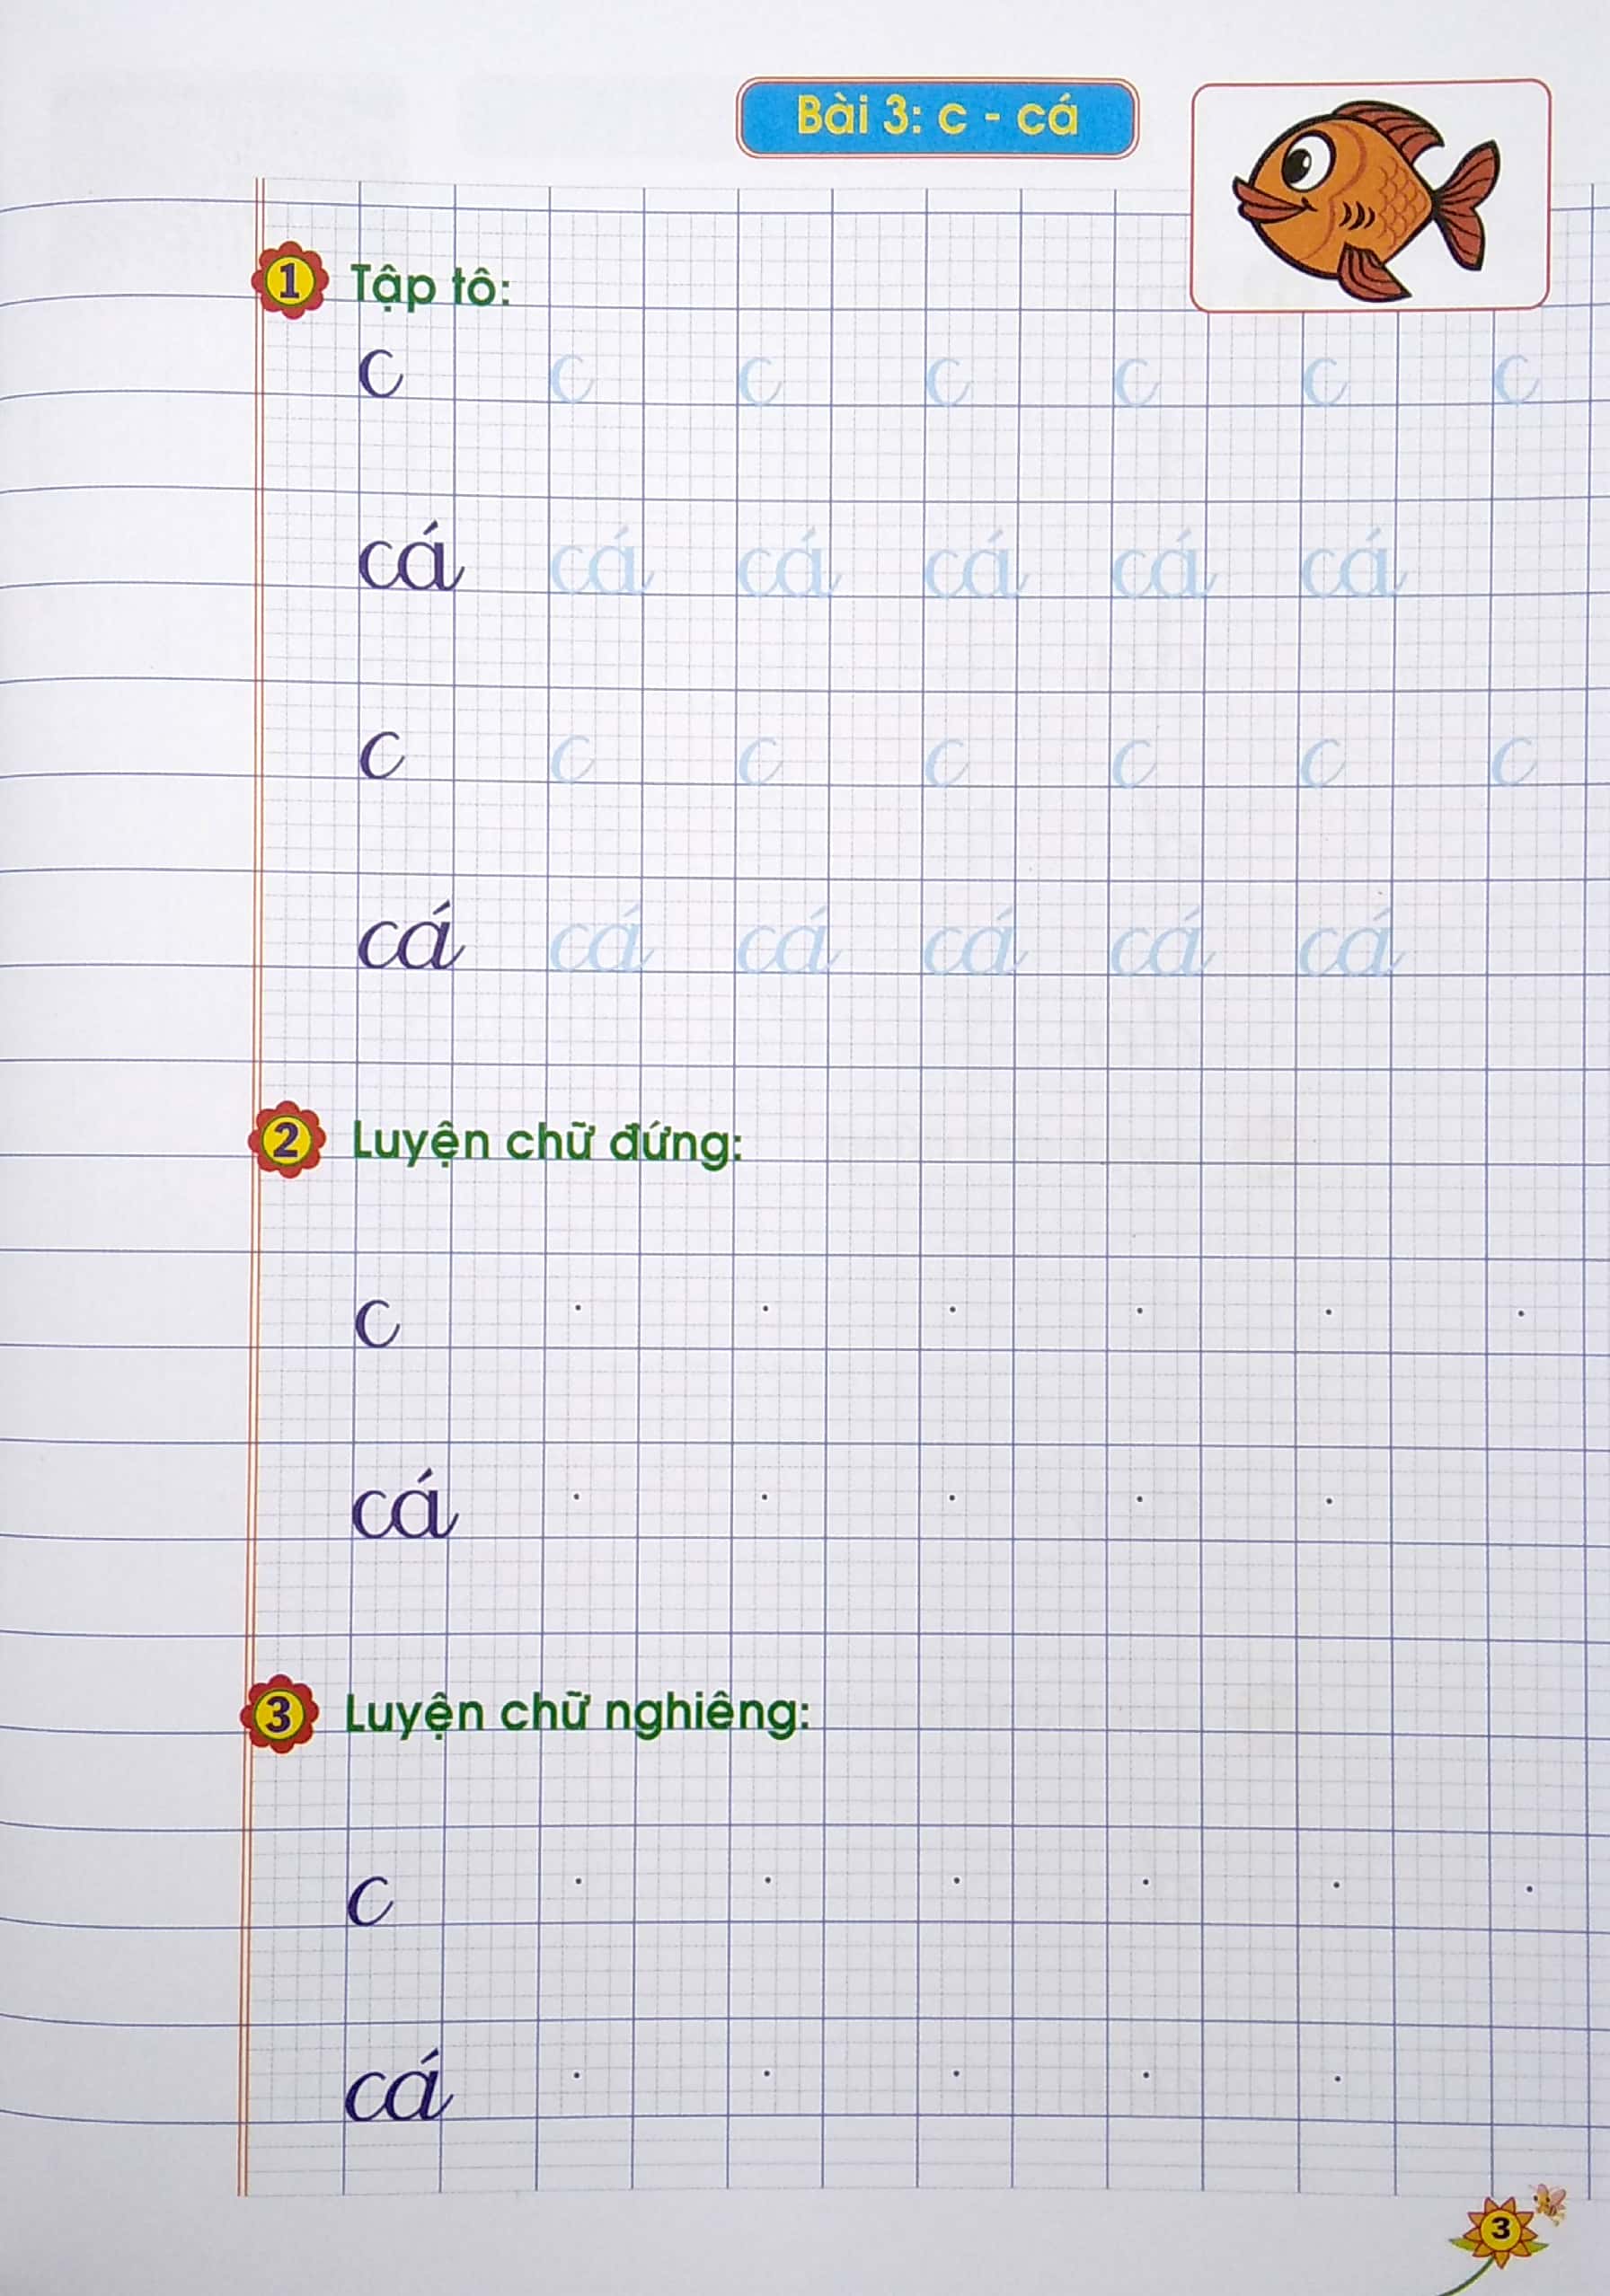 Bài 3: c - cá
1 Tập tô:
c c c c c c c
cá cá cá cá cá cá
c c c c c c c
cá cá cá cá cá cá
2 Luyện chữ đứng:
c
cá
3 Luyện chữ nghiêng:
c
cá
3